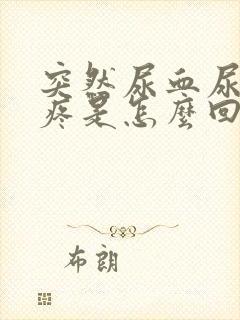 突然尿血尿
疼是怎麼回
布朗